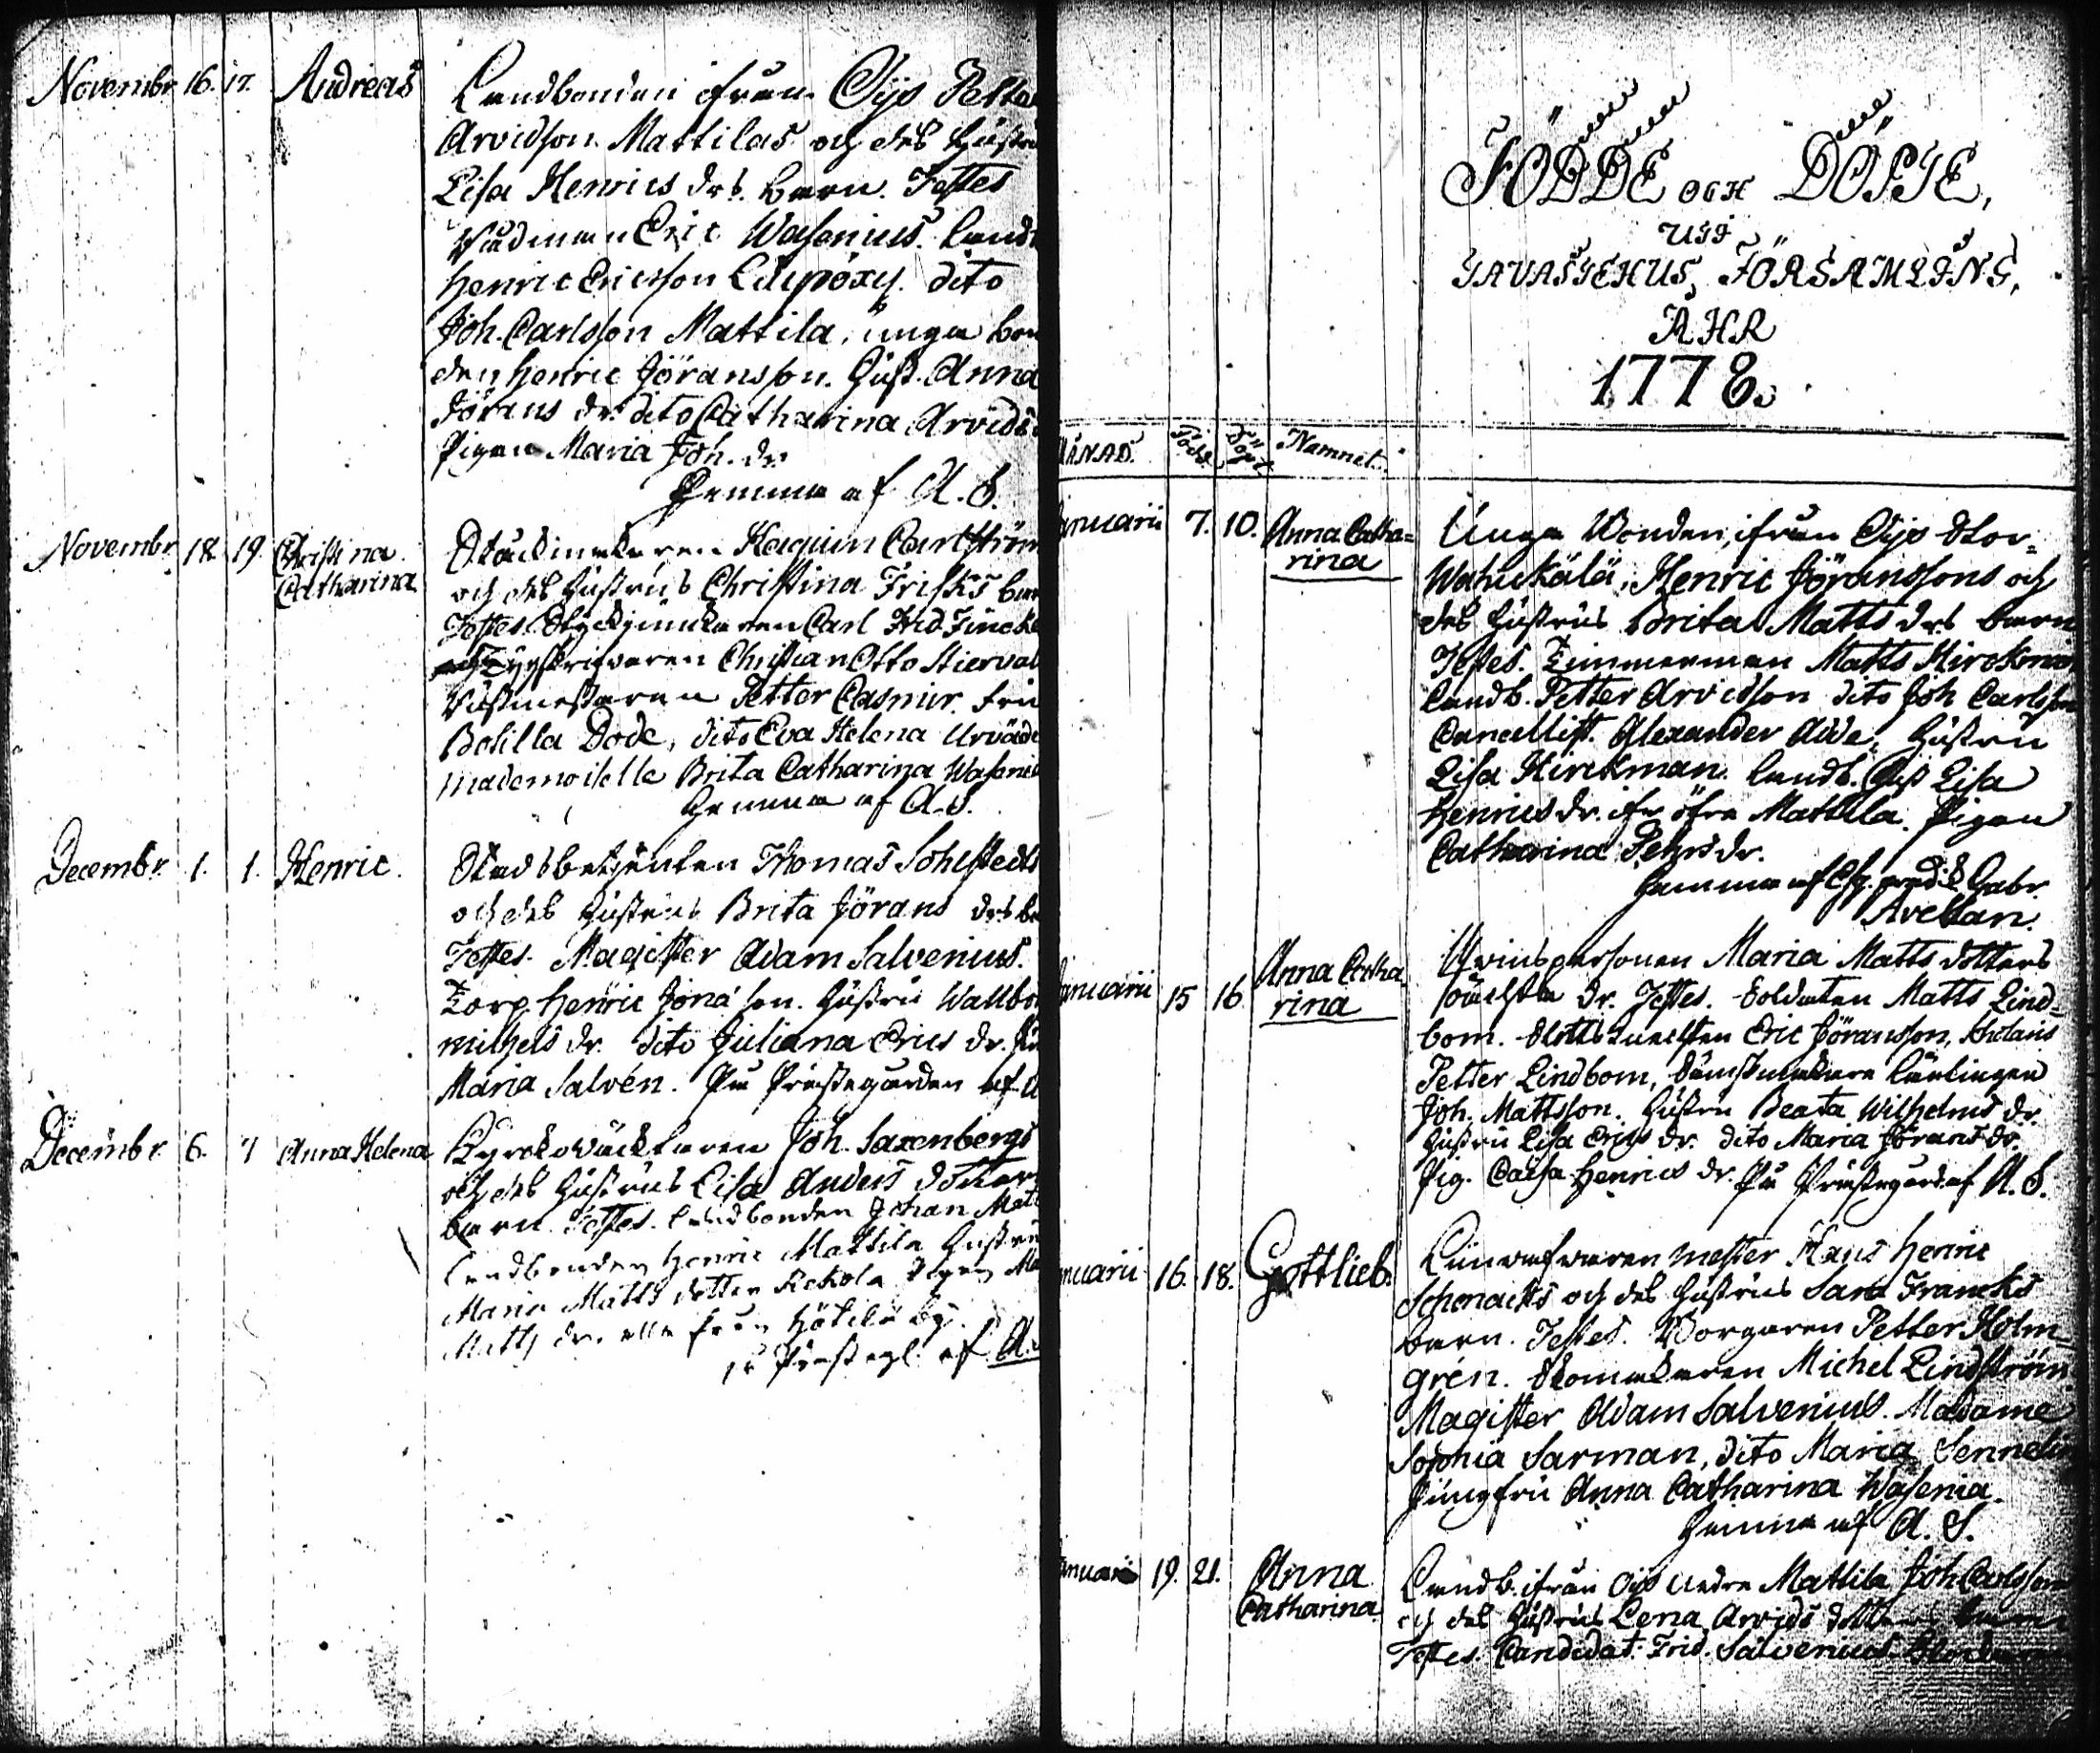 Novembr 16. 17. Andreas Landbonden ifrån Öijs Petter
Arvidson Mattilas och dess hustru
Lisa Henrics drs. barn. Testes
Rådman Eric Wasenius. Land
Henric Ericsson dito
Joh. Carlsson Mattila, unga bon
den Henric Jöransson. Hust. Anna
Jörans dr. dito Catharina Arvids
Pigan Maria Joh. dr
Hemma af A. S.
Novembr 18. 19. Christina Catharina Carlström
och dess hustrus Christina Frisks barn
Testes. Carl Frid. Fincke
Christian Otto Stierval
Petter Casmir. Fru
Bolilla Dode, dito Eva Helena
Mademoiselle Brita Catharina Waseni
Hemma af A. S.
Decembr. 1. 1. Henric. Stadsbetjenten Thomas Sohlstedts
och dess hustrus Brita Jörans drs ba
Testes. Magister Adam Salvenius.
Torp. Henric Jonæson. Hustru Wallbor
Michels dr. dito Juliana Erics dr.
Maria Salvén. På Prästegården af A
Decembr. 6. 7 Anna Helena Kyrckowäcktaren Joh. Saxenbergs
och dess hustrus Lisa Anders dotters
barn. Testes. Landbonden Johan Matt
Landbonden Henric Mattila Hustru
Maria Matts dotter Pigan Ma
Matts dr. alla från Hätilä by.
på Prästegl. af A.
FÖDDE OCH DÖPTE,
UTI
TAVASTEHUS FÖRSAMLING,
ÅHR
1778.
MÅNAD. Född. Döpt. Namnet.
anuarii 7. 10. Anna Catha=
rina
Unga Bonden, ifrån Öijs Stor=
Wahukälä, Henric Jöranssons och
dess hustrus Brita Matts drs barn
Testes. Timmerman Matts Hirckman
Landb. Petter Arvidsson dito Joh Carlsson
Cancellist. Alexander Alde, hustru
Lisa Hirckman. Landb. Hust Lisa
Henrics dr. ifr. öfra Mattila. Pigan
Catharina Pehrs dr.
Hemma af Gabr.
Avellan.
anuarii 15 16. Anna Catha
rina
Qvinspersonen Maria Matts dotters
oäckta dr. Testes. Soldaten Matts Lind=
bom. Eric Jöransson,
Petter Lindbom, lärlingen
Joh. Mattsson. Hustru Beata Wilhelms dr.
Hustru Lisa Erics dr. dito Maria Jörans dr.
Pig. Caisa Henrics dr. På Prästegård. af A. S.
nuarii 16. 18. Gottlieb. Linwäfvaren Mester Hans Henric
Schonacks och dess hustrus Sara Francks
barn. Testes. Borgaren Petter Holm=
grén. Skomakaren Michel Lindström
Magister Adam Salvenius. Madame
Sophia Sarman, dito Maria
Jungfru Anna Catharina Wasenia.
Hemma af A. S.
anuarii 19. 21. Anna
Catharina.
Landb. ifrån Öijs nedra Mattila Joh Carlsson
och dess hustrus Lena Arvids dotters barn
Testes. Candidat. Frid. Salvenius.